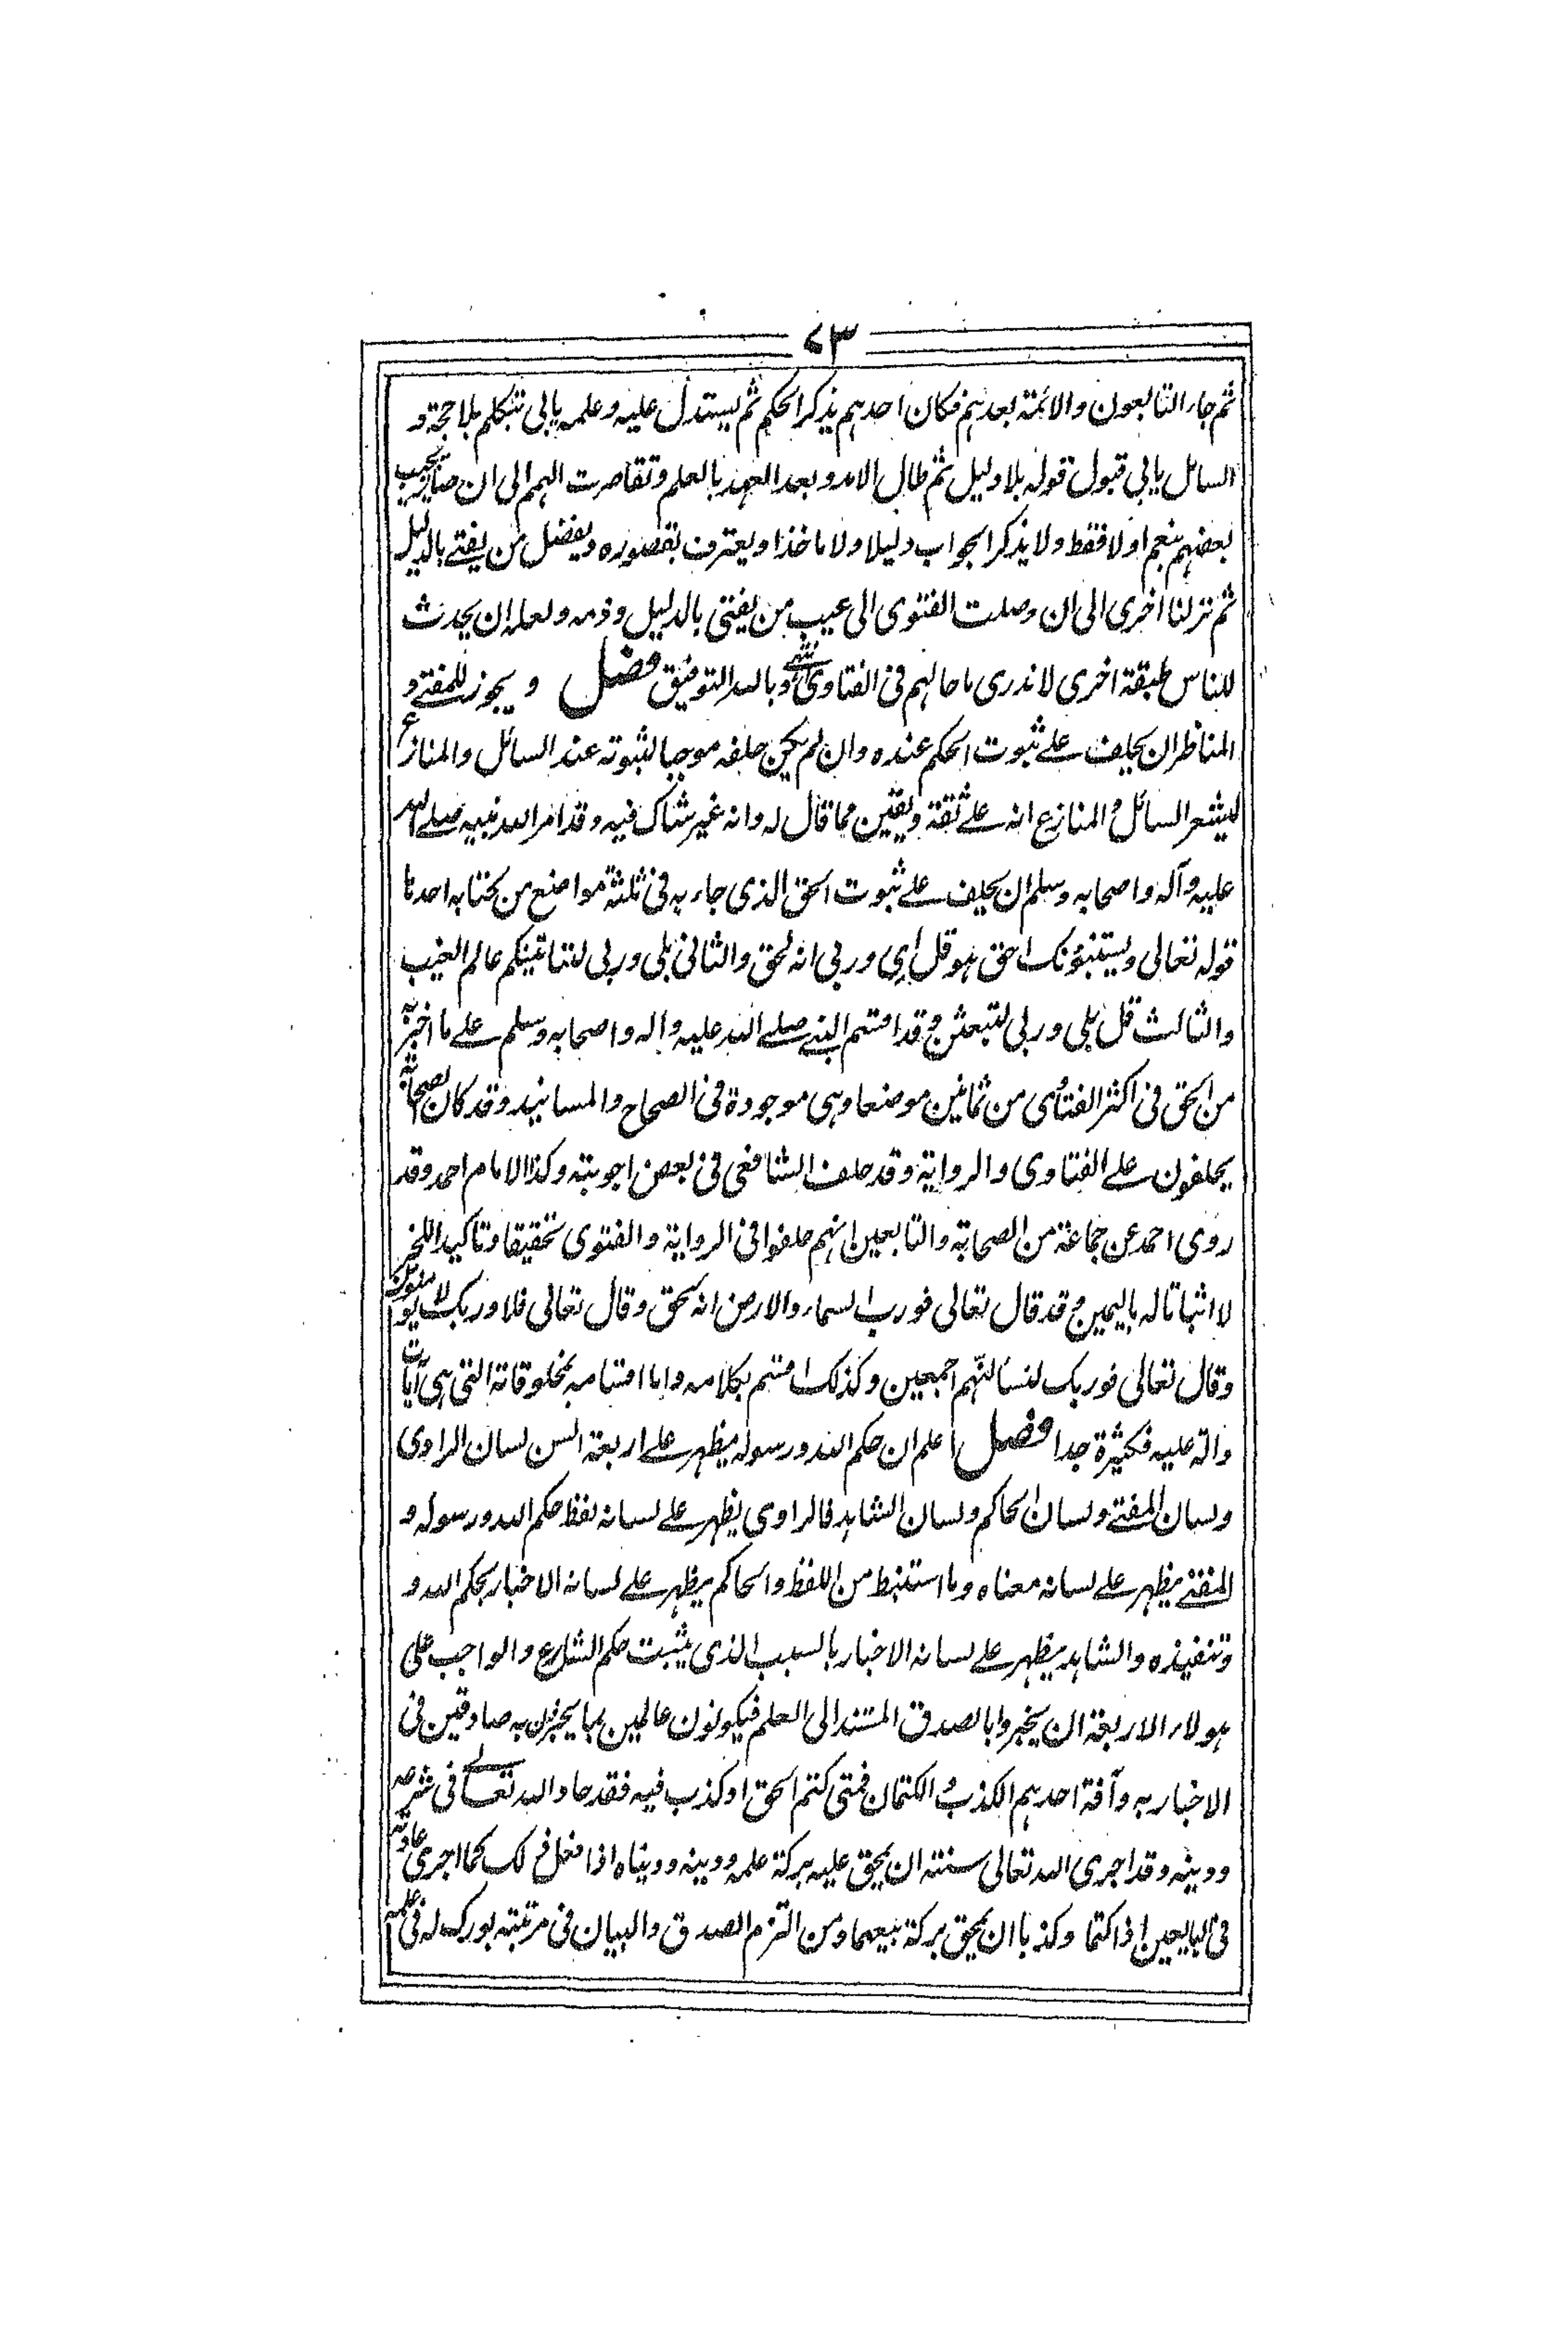 ٧٣
ثم جاء التابعون والائمة بعدہم فكان احدہم يذكر الحكم ثم يستدل عليه وعلمه يابى يتكلم بلا حجة و
السائل يابى قبول قوله بلا دليل ثم طال الامد وبعد العهد بالعلم وتقاصرت الهمم الى ان صار يجيب
بعضہم بنعم او لا فقط ولا يذكر الجواب دليلا ولا ماخذا ويعترف بقصوره ويفضل من يفتے بالدليل
ثم نزلنا اخرى الى ان وصلت الفتوى الى عيب من يفتى بالدليل وذمه ولعله ان يحدث
للناس طبقة اخرى لا ندرى ما حالہم فى الفتاوى انتهے وبالله التوفيق فصل و يجوز للمفتے و
المناظر ان يحلف علے ثبوت الحكم عنده وان لم يكن حلفه موجبا لثبوته عند السائل والمنازع
ليشعر السائل والمنازع انه علے ثقة ويقين مما قال له وانه غير شاك فيه وقد امر الله نبيه صلے الله
عليه وآله واصحابه وسلم ان يحلف علے ثبوت الحق الذى جاء به فى ثلثة مواضع من كتابه احدہا
قوله تعالى ويستنبؤنك احق ہو قل اى وربى انه لحق والثانى بلى وربى لتاتينكم عالم الغيب
والثالث قل بلى وربى لتبعثن وقد اقسم النبے صلے الله عليه واله واصحابه وسلم علے ما اخبر به
من الحق فى اكثر الفتاوى من ثمانين موضعا وہى موجودة فى الصحاح والمسانيد وقد كان الصحابة
يحلفون علے الفتاوى والرواية وقد حلف الشافعى فى بعض اجوبته وكذا الامام احمد وقد
روى احمد عن جماعة من الصحابة والتابعين انہم حلفوا فى الرواية والفتوى تحقيقا وتاكيدا للخبر
لا اثباتا له باليمين وقد قال تعالى فورب السماء والارض انه لحق وقال تعالى فلا وربك لا يؤمنون
وقال تعالى فوربك لنسألنّہم اجمعين وكذلك اقسم بكلامه واما اقسامه بمخلوقاته التى ہى آيات
والة عليه فكثيرة جدا فصل اعلم ان حكم الله ورسوله يظہر علے اربعة السن لسان الراوى
ولسان المفتے ولسان الحاكم ولسان الشاہد فالراوى يظہر علے لسانه لفظ حكم الله ورسوله و
المفتے يظہر علے لسانه معناه وما استنبط من اللفظ والحاكم يظہر علے لسانه الاخبار بحكم الله و
وتنفيذه والشاہد يظہر علے لسانه الاخبار بالسبب الذى يثبت حكم الشارع والواجب على
ہولاء الاربعة ان يخبروا بالصدق المستند الى العلم فيكونون عالمين بما يخبرون به صادقين فى
الاخبار به وآفة احدہم الكذب والكتمان فمتى كتم الحق او كذب فيه فقد حاد الله تعالے فى شرعه
ودينه وقد اجرى الله تعالى سنته ان يمحق عليه بركة علمه ودينه ودنياه اذا فعل ذلك كما اجرى عادته
فى البايعين اذا كتما وكذبا ان يمحق بركة بيعهما ومن التزم الصدق والبيان فى مرتبته بورك له فى علمه